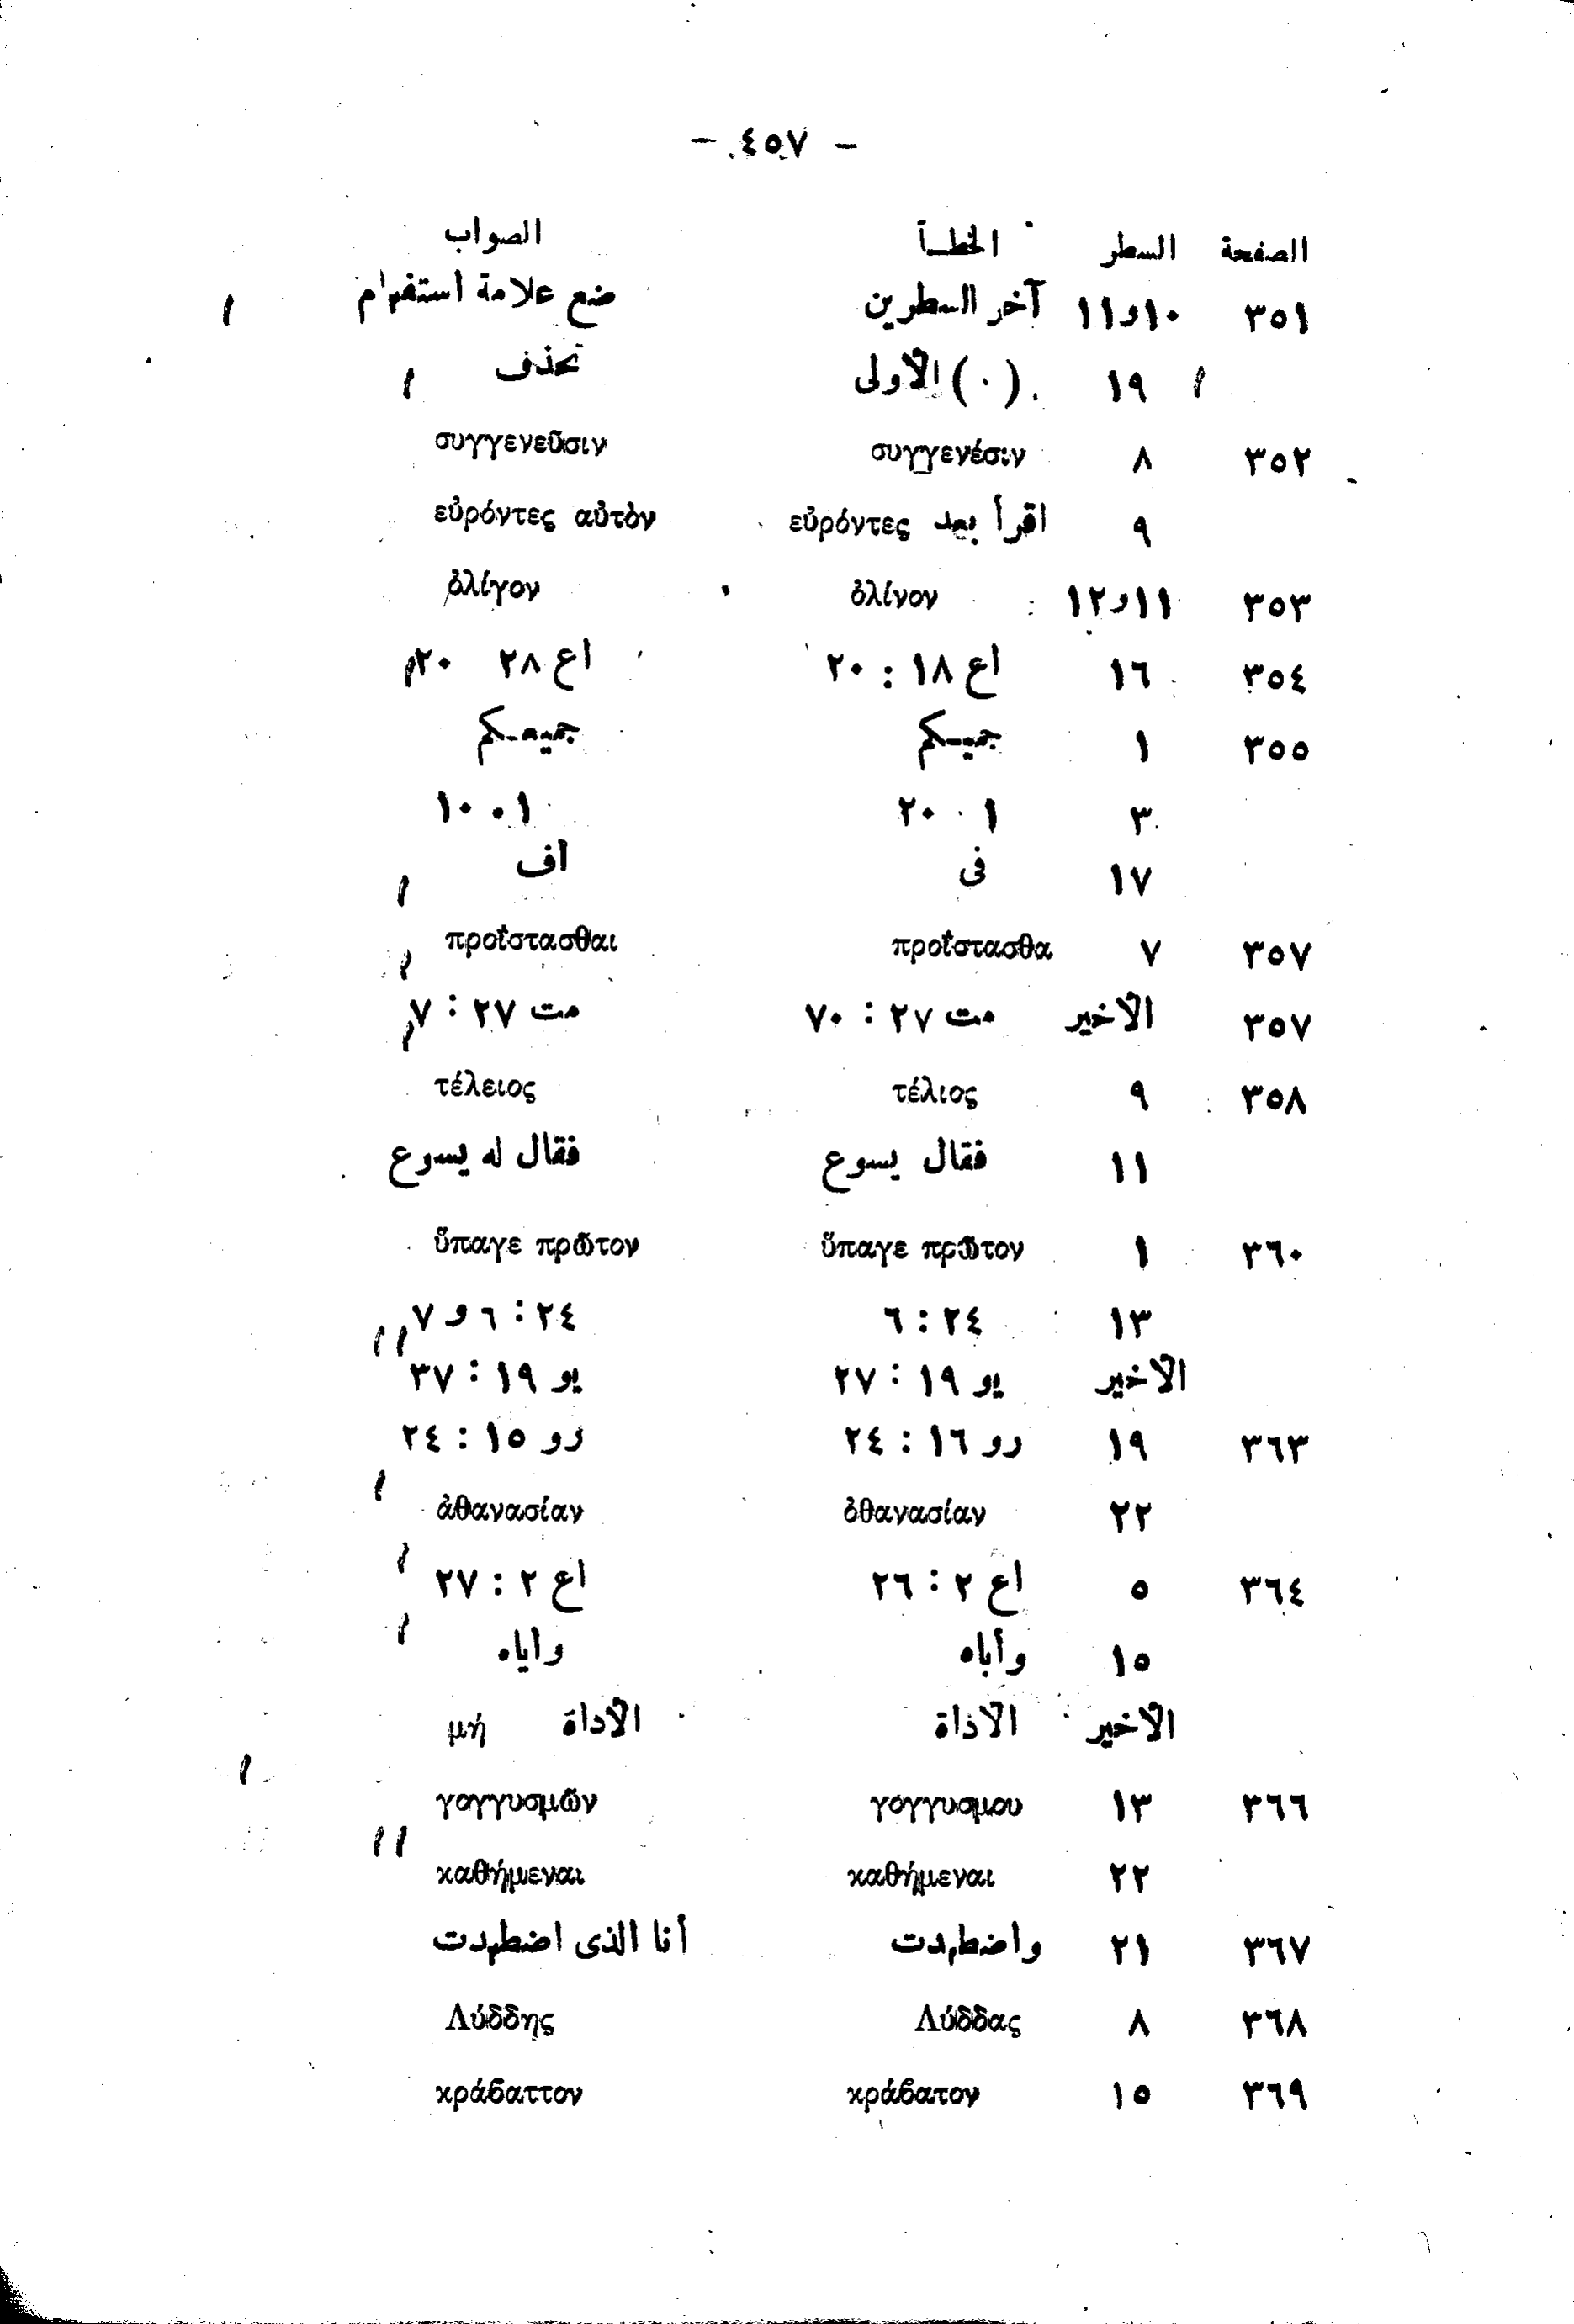 — ٤٥٧ —
الصفحة السطر الخطـأ الصواب
٣٥١ ١٠و١١ آخر السطرين ضع علامة استفهام
١٩ (٠) الأولى تحذف
٣٥٢ ٨ συγγενέσιν συγγενεῦσιν
٩ اقرأ بعد εὑρόντες εὑρόντες αὐτὸν
٣٥٣ ١١و١٢ ὀλίνον ὀλίγον
٣٥٤ ١٦ اع ١٨ : ٢٠ اع ٢٨ ٢٠
٣٥٥ ١ جميـكم جميعـكم
٣ ١ ٠ ٢٠ ١ ٠ ١٠
١٧ فى أف
٣٥٧ ٧ προΐστασθα προΐστασθαι
٣٥٧ الاخير مت ٢٧ : ٧٠ مت ٢٧ : ٧
٣٥٨ ٩ τέλιος τέλειος
١١ فقال يسوع فقال له يسوع
٣٦٠ ١ ὕπαγε πρῶτον ὕπαγε πρῶτον
١٣ ٢٤ : ٦ ٢٤ : ٦ و ٧
الاخير يو ١٩ : ٢٧ يو ١٩ : ٣٧
٣٦٣ ١٩ رو ١٦ : ٢٤ رو ١٥ : ٢٤
٢٢ ὀθανασίαν ἀθανασίαν
٣٦٤ ٥ اع ٢ : ٢٦ اع ٢ : ٢٧
١٥ وأباه وأياه
الاخير الاذاة الأداة μή
٣٦٦ ١٣ γογγυσμου γογγυσμῶν
٢٢ καθήμεναι καθήμεναι
٣٦٧ ٢١ واضطهدت أنا الذى اضطهدت
٣٦٨ ٨ Λύδδας Λύδδης
٣٦٩ ١٥ κράϐατον κράϐαττον